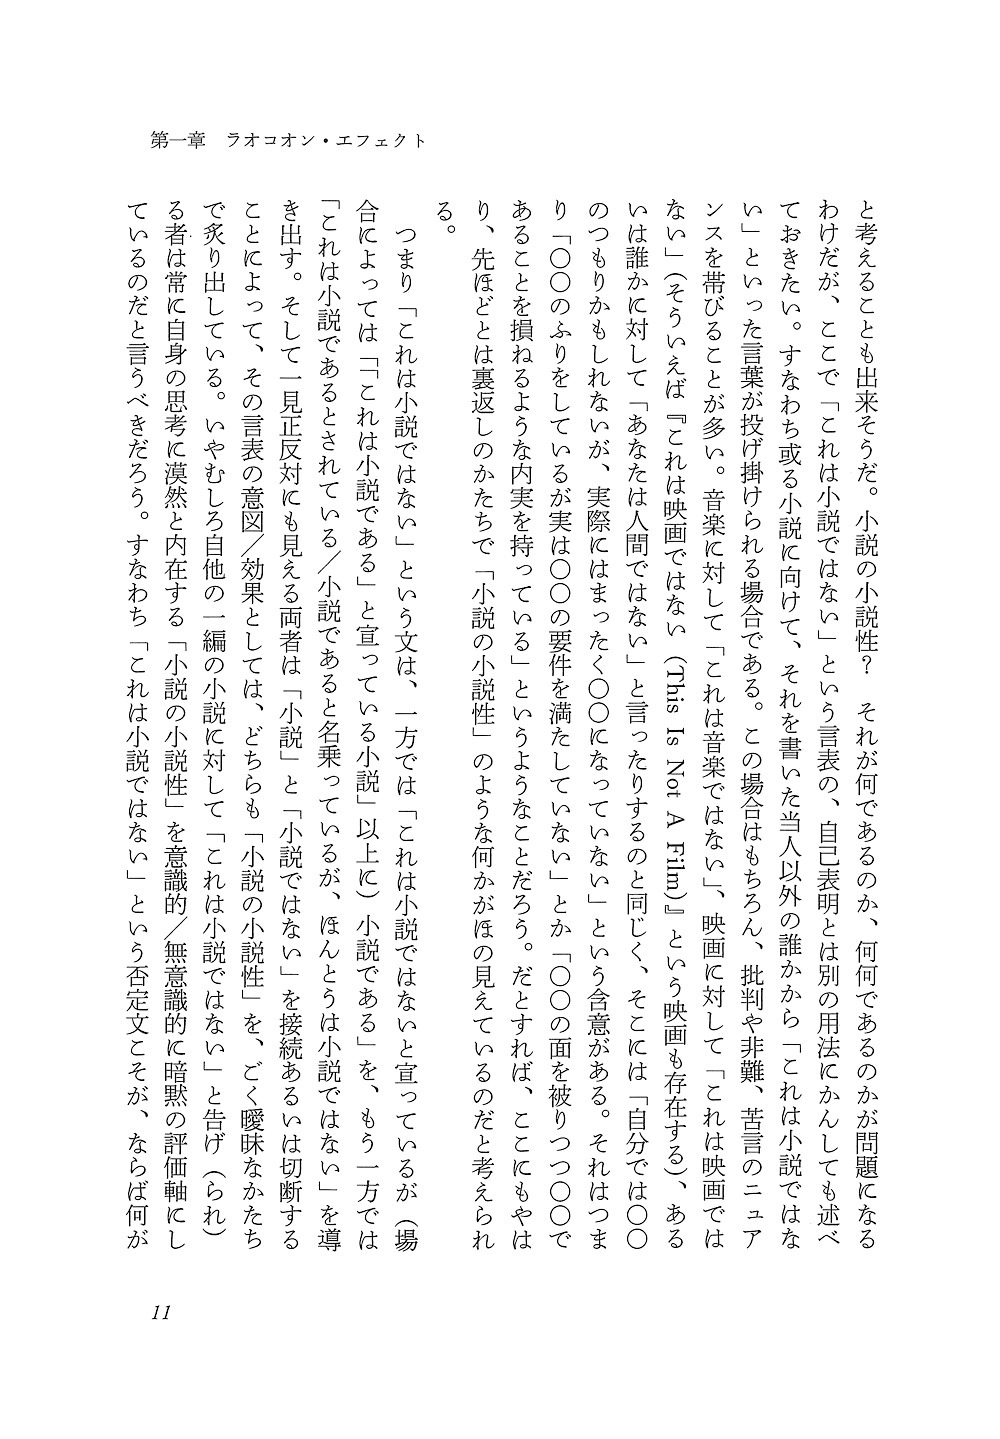 第一章　ラオコオン・エフェクト
と考えることも出来そうだ。小説の小説性？　それが何であるのか、何何であるのかが問題になる
わけだが、ここで「これは小説ではない」という言表の、自己表明とは別の用法にかんしても述べ
ておきたい。すなわち或る小説に向けて、それを書いた当人以外の誰かから「これは小説ではな
い」といった言葉が投げ掛けられる場合である。この場合はもちろん、批判や非難、苦言のニュア
ンスを帯びることが多い。音楽に対して「これは音楽ではない」、映画に対して「これは映画では
ない」（そういえば『これは映画ではない（This Is Not A Film）』という映画も存在する）、ある
いは誰かに対して「あなたは人間ではない」と言ったりするのと同じく、そこには「自分では〇〇
のつもりかもしれないが、実際にはまったく〇〇になっていない」という含意がある。それはつま
り「〇〇のふりをしているが実は〇〇の要件を満たしていない」とか「〇〇の面を被りつつ〇〇で
あることを損ねるような内実を持っている」というようなことだろう。だとすれば、ここにもやは
り、先ほどとは裏返しのかたちで「小説の小説性」のような何かがほの見えているのだと考えられ
る。
　つまり「これは小説ではない」という文は、一方では「これは小説ではないと宣っているが（場
合によっては「「これは小説である」と宣っている小説」以上に）小説である」を、もう一方では
「これは小説であるとされている／小説であると名乗っているが、ほんとうは小説ではない」を導
き出す。そして一見正反対にも見える両者は「小説」と「小説ではない」を接続あるいは切断する
ことによって、その言表の意図／効果としては、どちらも「小説の小説性」を、ごく曖昧なかたち
で炙り出している。いやむしろ自他の一編の小説に対して「これは小説ではない」と告げ（られ）
る者は常に自身の思考に漠然と内在する「小説の小説性」を意識的／無意識的に暗黙の評価軸にし
ているのだと言うべきだろう。すなわち「これは小説ではない」という否定文こそが、ならば何が
11